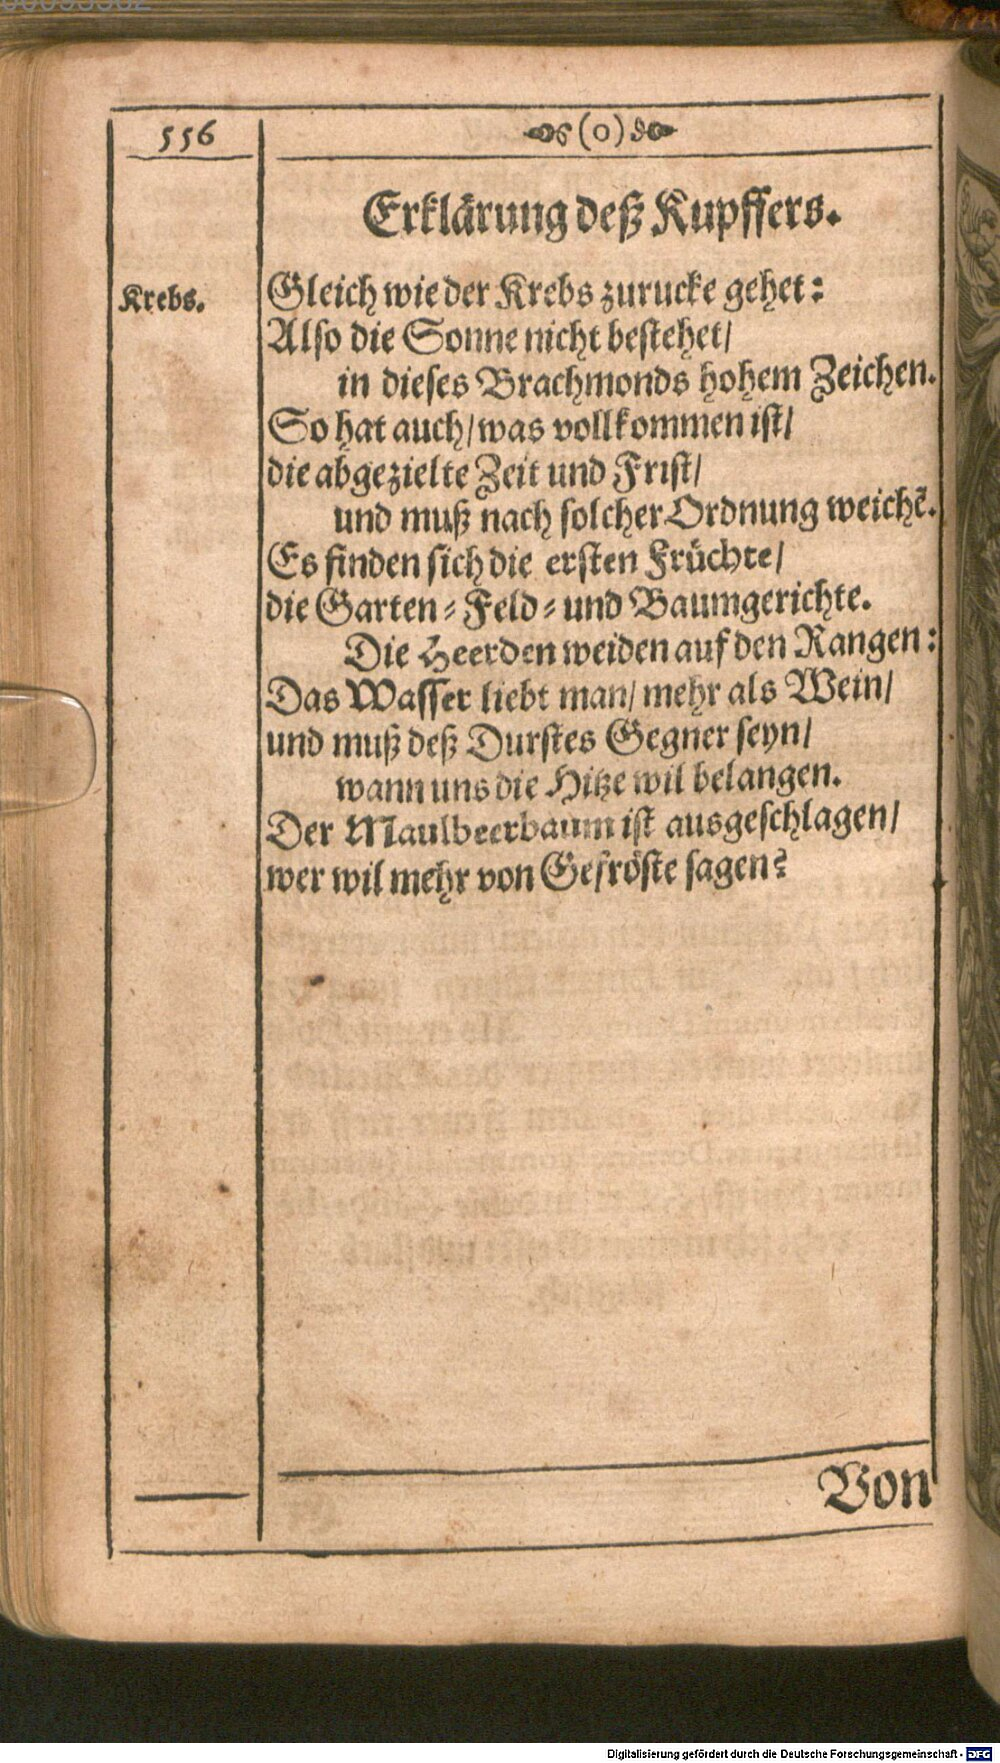 556
(o)
Erklärung deß Kupffers.
Krebs.
Gleich wie der Krebs zurucke gehet:
Also die Sonne nicht bestehet/
in dieses Brachmonds hohem Zeichen.
So hat auch/ was vollkommen ist/
die abgezielte Zeit und Frist/
und muß nach solcher Ordnung weichẽ.
Es finden sich die ersten Früchte/
die Garten- Feld- und Baumgerichte.
Die Heerden weiden auf den Rangen:
Das Wasser liebt man/ mehr als Wein/
und muß deß Durstes Gegner seyn/
wann uns die Hitze wil belangen.
Der Maulbeerbaum ist ausgeschlagen/
wer wil mehr von Gefröste sagen?
Von
Digitalisierung gefördert durch die Deutsche Forschungsgemeinschaft - DFG